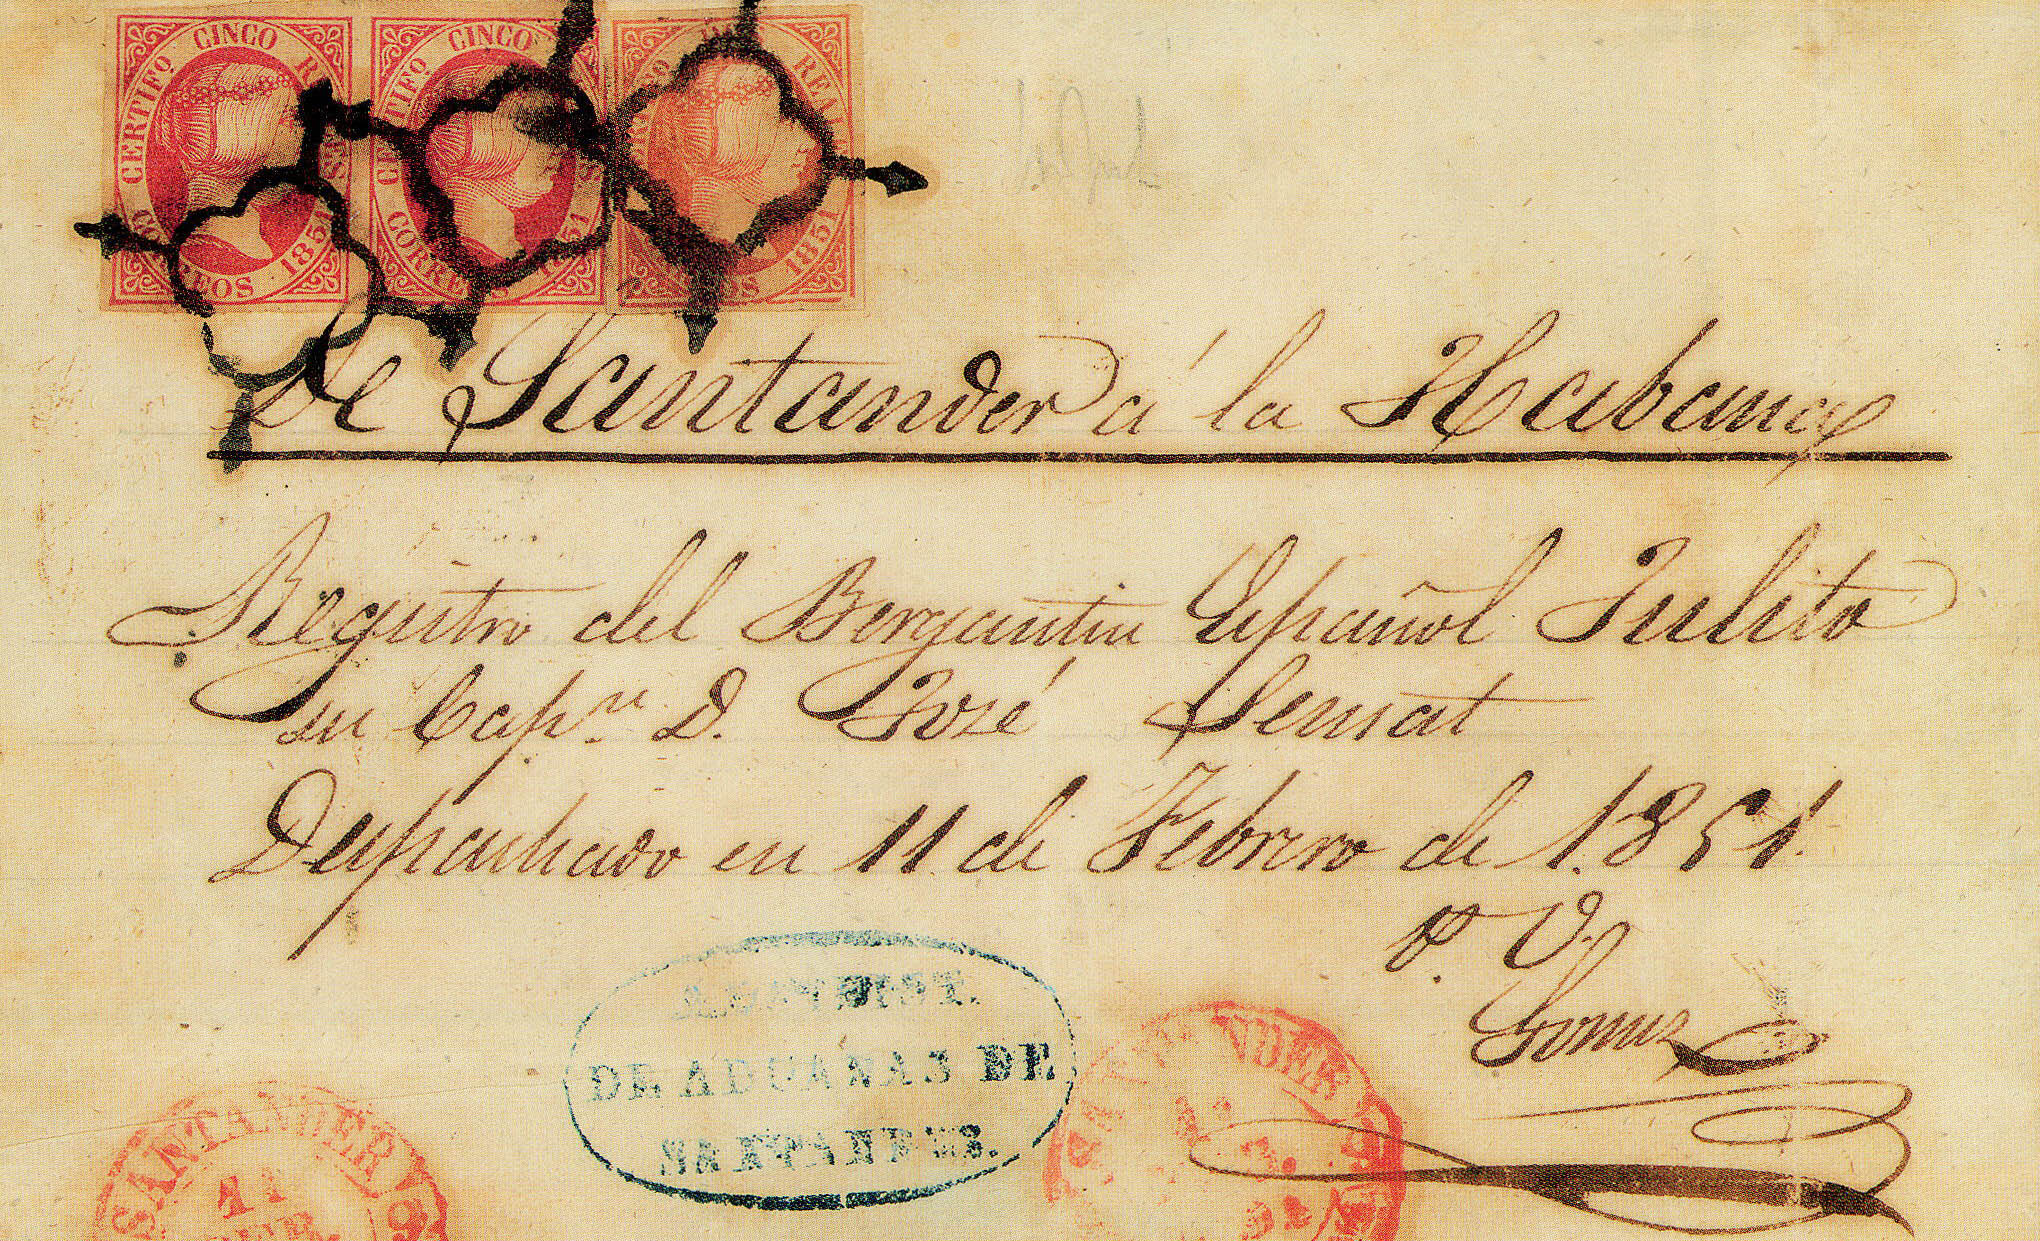 CERTIFº CINCO R S
CORREOS · 1851
CERTIFº CINCO
CORREOS 1851
REAL
1851
De Santander á la Habana
Registro del Bergantin Español Julito
su Capⁿ D. José Sensat
Despachado en 11 de Febrero de 1.851.
P. V.
Gomez
DE ADUANAS DE
SANTANDER.
SANTANDER
11
FEB.
SANTANDER